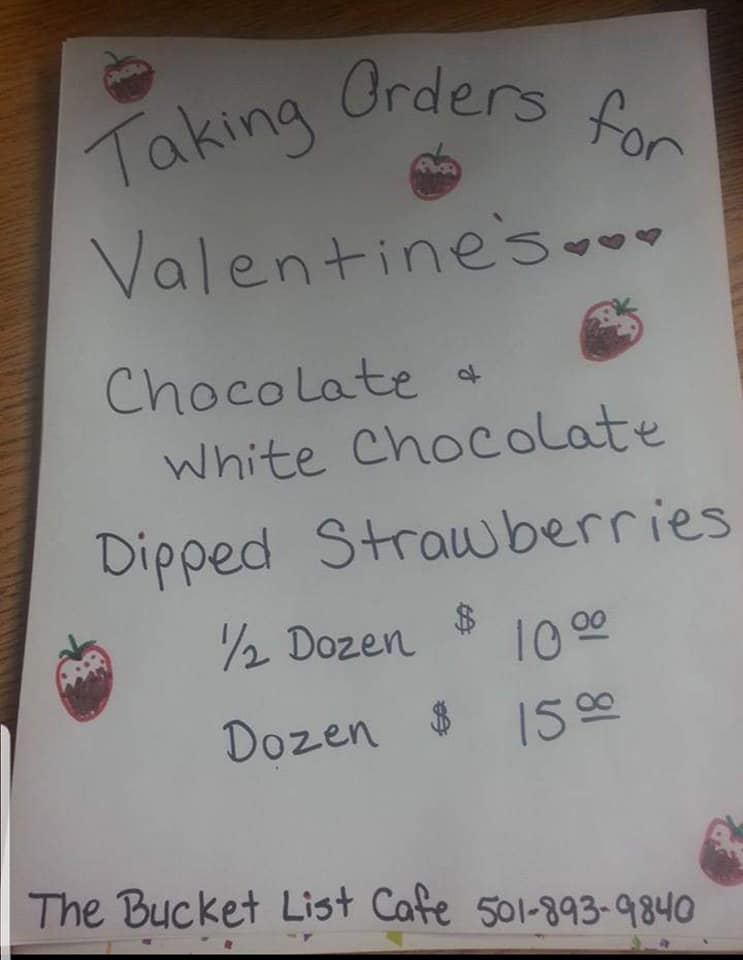 Taking Orders for
Valentine's
Chocolate &
White Chocolate
Dipped Strawberries
1/2 Dozen $ 10 00
Dozen $ 15 00
The Bucket List Cafe 501-893-9840